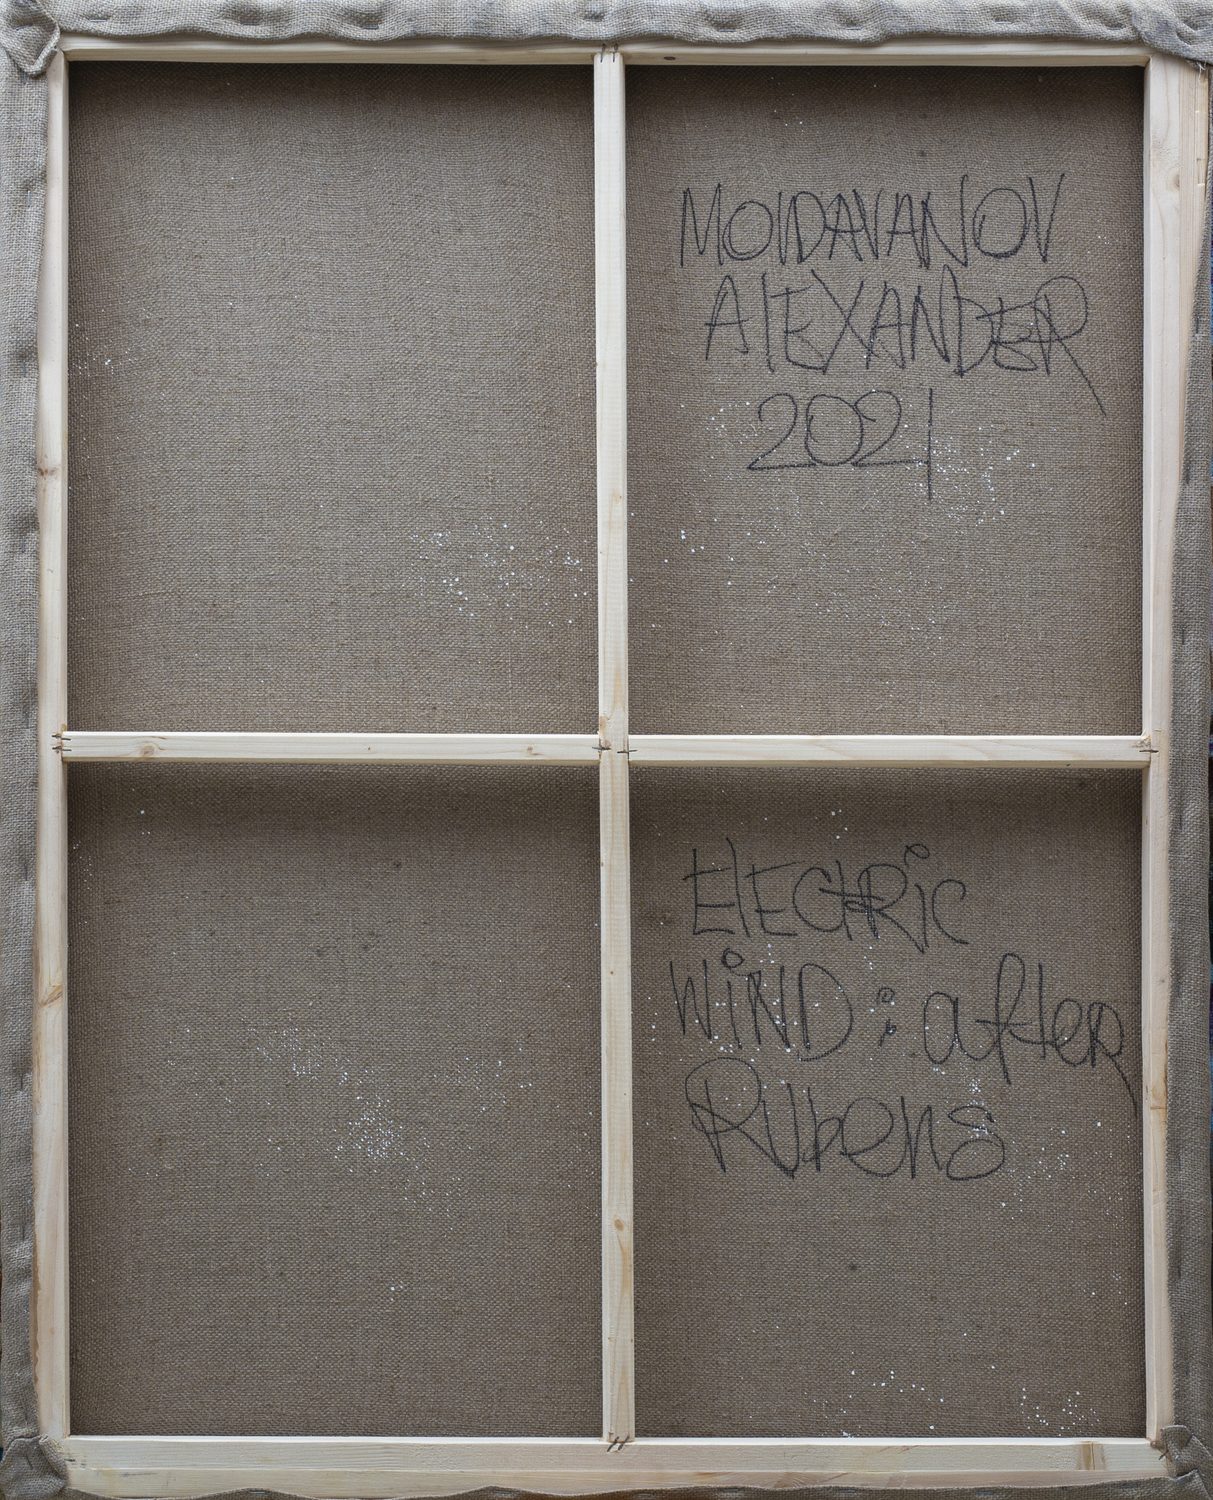 MOlDAVANOV
AlEXANDER
2021
ElECtRiC
WiND : after
Rubens